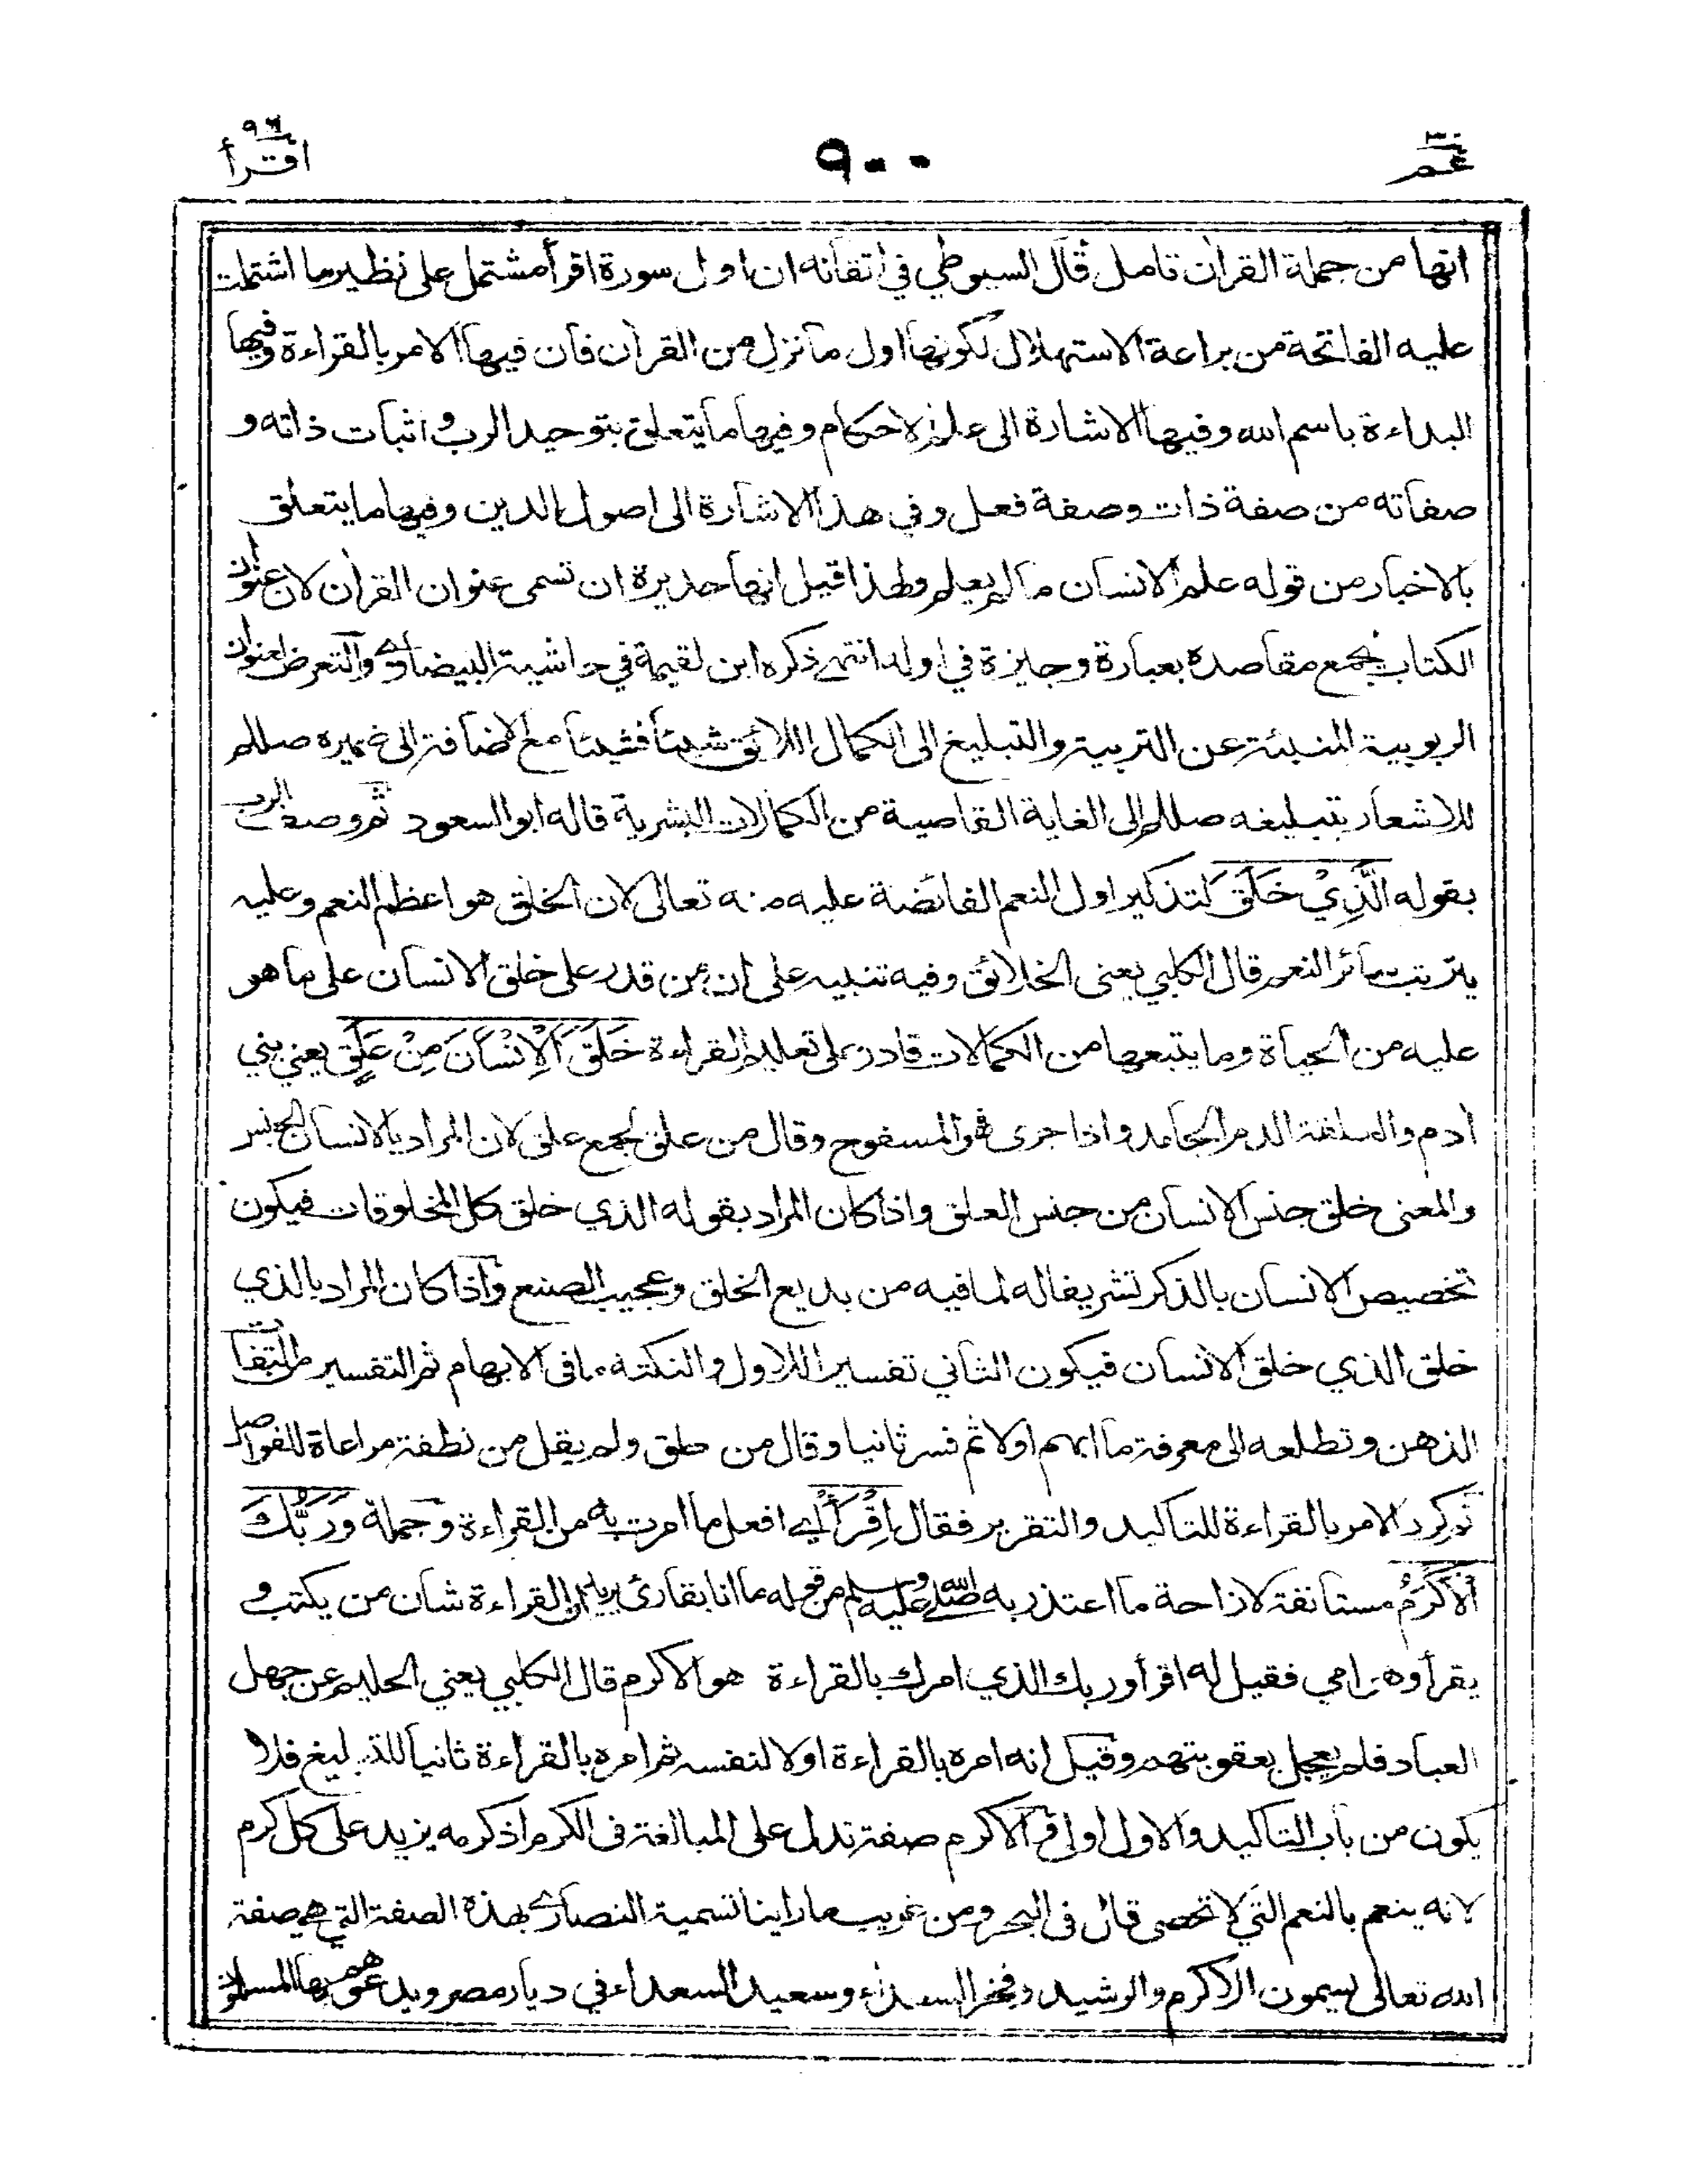 عم ٣٠
٩٠٠
اقرأ ٩٦
انها من جملة القران تامل قال السيوطي في اتقانه ان اول سورة اقرأ مشتمل على نظير ما اشتملت
عليه الفاتحة من براعة الاستهلال لكونها اول ما نزل من القران فان فيها الامر بالقراءة وفيها
البداءة باسم الله وفيها الاشارة الى علم الاحكام وفيها ما يتعلق بتوحيد الرب واثبات ذاته و
صفاته من صفة ذات وصفة فعل وفي هذا الاشارة الى اصول الدين وفيها ما يتعلق
بالاخبار من قوله علم الانسان ما لم يعلم ولهذا قيل انها جديرة ان تسمى عنوان القران لان عنوان
الكتاب يجمع مقاصده بعبارة وجيزة في اوله انتهى ذكره ابن لقيمة في حاشية البيضاوي والتعرض لعنوان
الربوبية المنبئة عن التربية والتبليغ الى الكمال اللائق شيئا فشيئا مع الاضافة الى ضميره صللم
للاشعار بتبليغه صللم الى الغاية القاصية من الكمالات البشرية قاله ابو السعود ثم وصف الرب
بقوله الَّذِيْ خَلَقَ لتذكير اول النعم الفائضة عليه منه تعالى لان الخلق هو اعظم النعم وعليه
يترتب سائر النعم قال الكلبي يعني الخلائق وفيه تنبيه على ان من قدر على خلق الانسان على ما هو
عليه من الحياة وما يتبعها من الكمالات قادر على تعليم القراءة خَلَقَ الْاِنْسَانَ مِنْ عَلَقٍ يعني بني
ادم والعلقة الدم الجامد واذا جرى فهو المسفوح وقال من علق بجمع علق لان المراد بالانسان الجنس
والمعنى خلق جنس الانسان من جنس العلق واذا كان المراد بقوله الذي خلق كل المخلوقات فيكون
تخصيص الانسان بالذكر تشريفا له لما فيه من بديع الخلق وعجيب الصنع واذا كان المراد بالذي
خلق الذي خلق الانسان فيكون الثاني تفسيرا للاول والنكتة ما في الابهام ثم التفسير من التفات
الذهن وتطلعه الى معرفة ما ابهم اولا ثم فسر ثانيا وقال من علق ولم يقل من نطفة مراعاة للفواصل
ثم كرر الامر بالقراءة للتاكيد والتقرير فقال اِقْرَأْ اي افعل ما امرت به من القراءة وجملة وَرَبُّكَ
الْاَكْرَمُ مستانفة لازاحة ما اعتذر به صلى الله عليه وسلم من قوله ما انا بقارئ يريد ان القراءة شان من يكتب و
يقرأ وهو امي فقيل له اقرأ وربك الذي امرك بالقراءة هو الاكرم قال الكلبي يعني الحليم عن جهل
العباد فلم يعجل بعقوبتهم وقيل انه امره بالقراءة اولا لنفسه ثم امره بالقراءة ثانيا للتبليغ فلا
يكون من باب التاكيد والاول اولى والاكرم صفة تدل على المبالغة في الكرم اذ كرمه يزيد على كل كرم
لانه ينعم بالنعم التي لا تحصى قال في البحر ومن غريب ما راينا تسمية النصارى بهذه الصفة التي هي صفة
الله تعالى يسمون الاكرم والرشيد وفخر السعداء وسعيد السعداء في ديار مصر ويدعوهم بها المسلمون